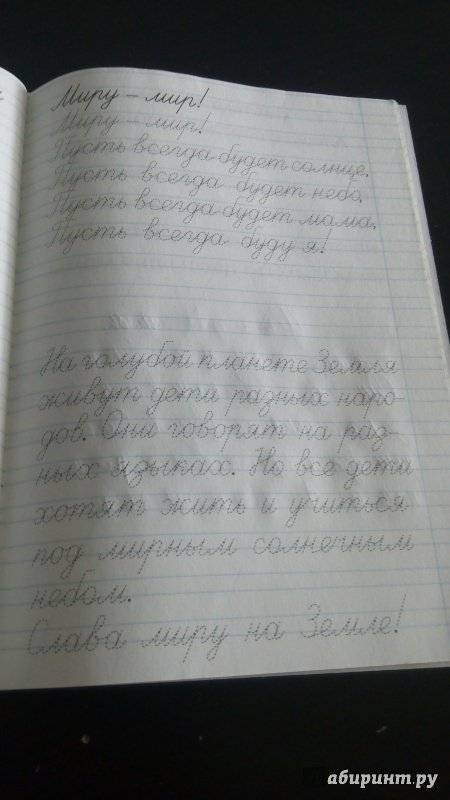 Миру – мир!
Миру – мир!
Пусть всегда будет солнце.
Пусть всегда будет небо.
Пусть всегда будет мама.
Пусть всегда буду я!
На голубой планете Земля
живут дети разных наро-
дов. Они говорят на раз-
ных языках. Но все дети
хотят жить и учиться
под мирным солнечным
небом.
Слава миру на Земле!
Лабиринт.ру